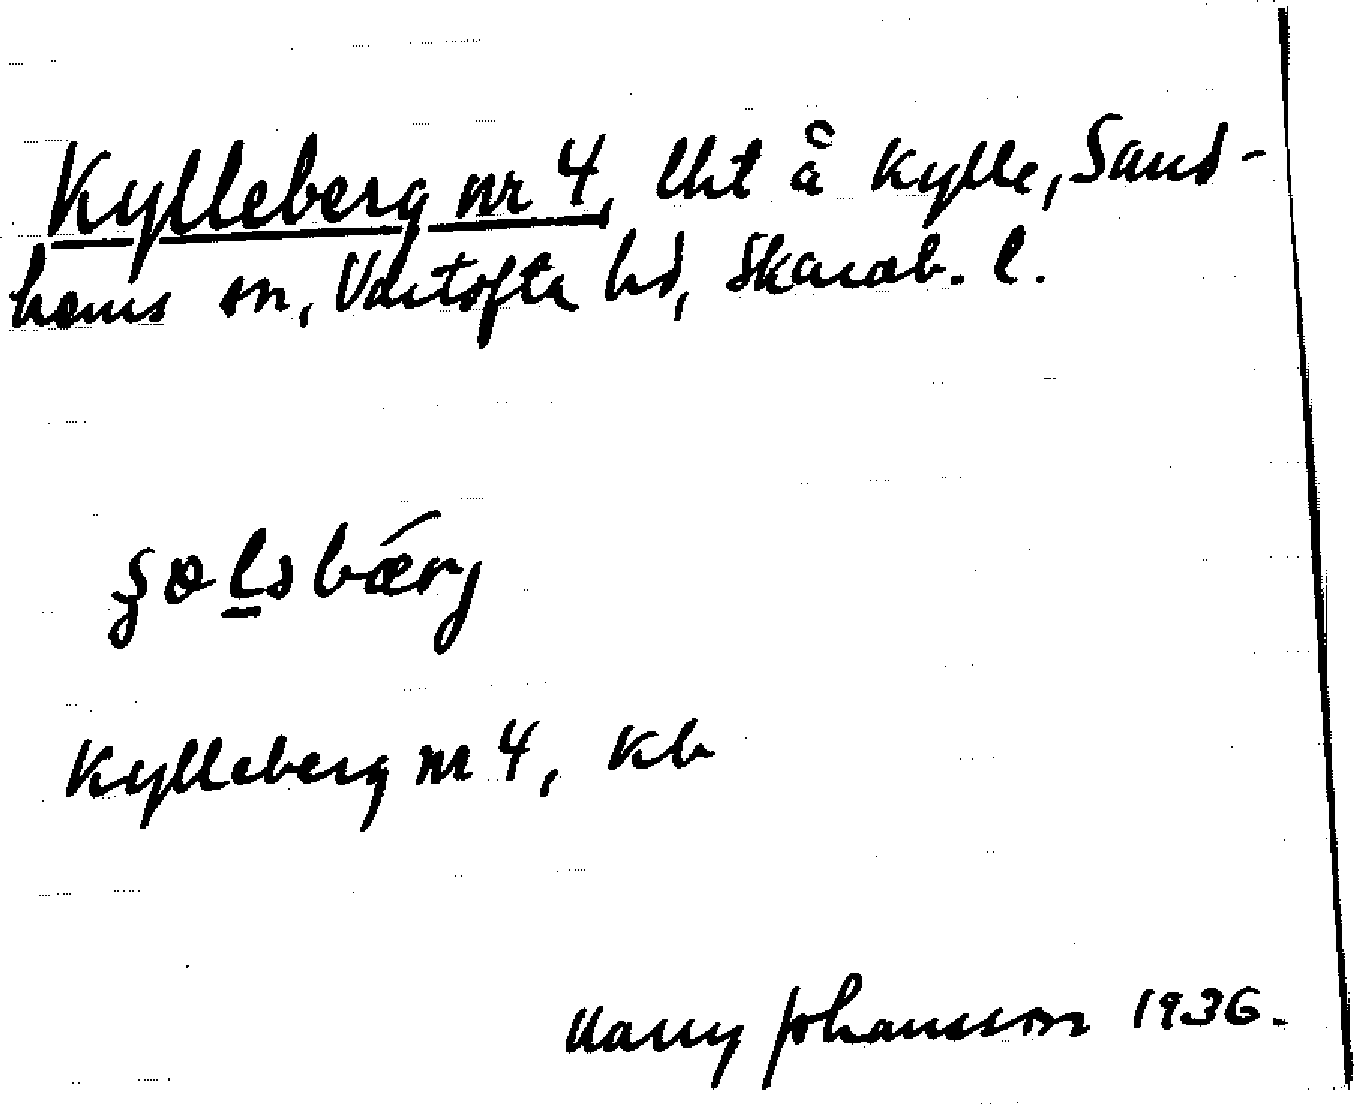 Kylleberg nr 4, lht å Kylle, Sand-
hems sn, Vartofta hd, Skarab. l.
Kylleberg nr 4, Kb
Harry Johansson 1936.